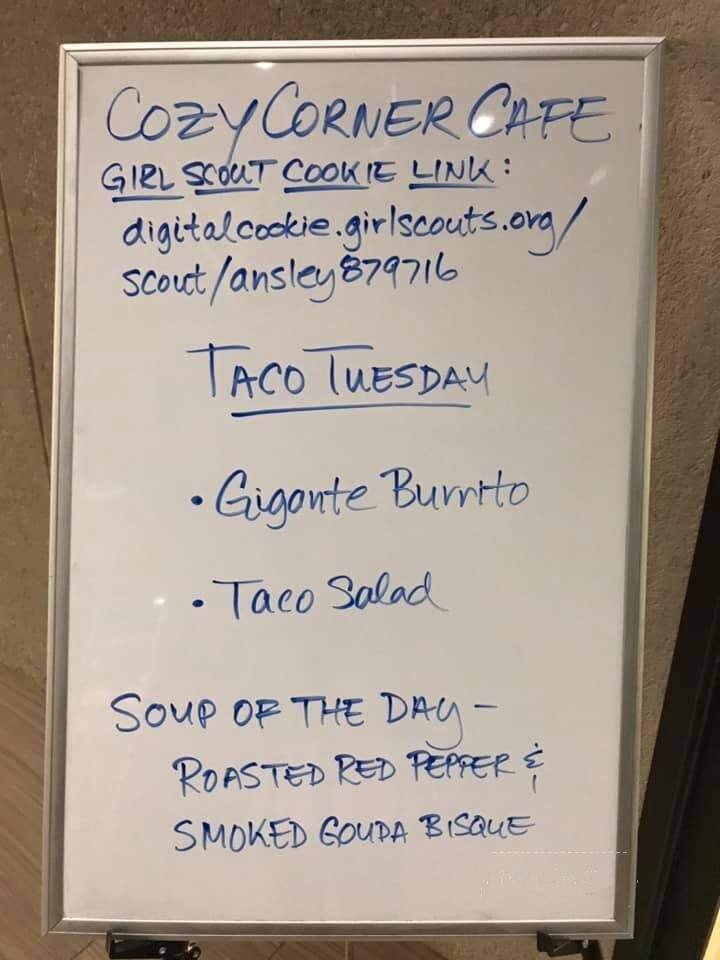 COZY CORNER CAFE
GIRL SCOUT COOKIE LINK:
digitalcookie.girlscouts.org/
scout/ansley879716
TACO TUESDAY
• Gigante Burrito
• Taco Salad
SOUP OF THE DAY -
ROASTED RED PEPPER &
SMOKED GOUDA BISQUE